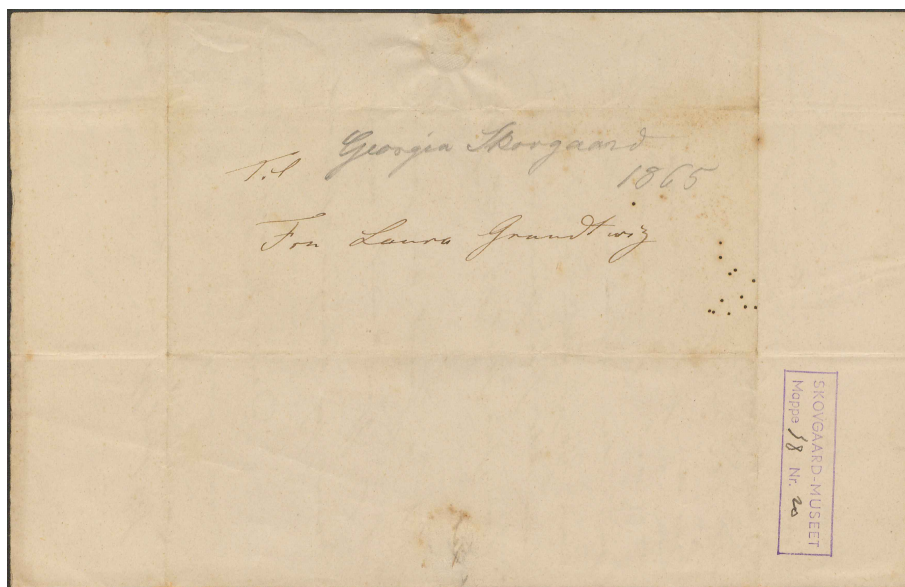 Georgia Skovgaard
Til
1865
Fru Laura Grundtvig
SKOVGAARD-MUSEET
Mappe 18 Nr. 20